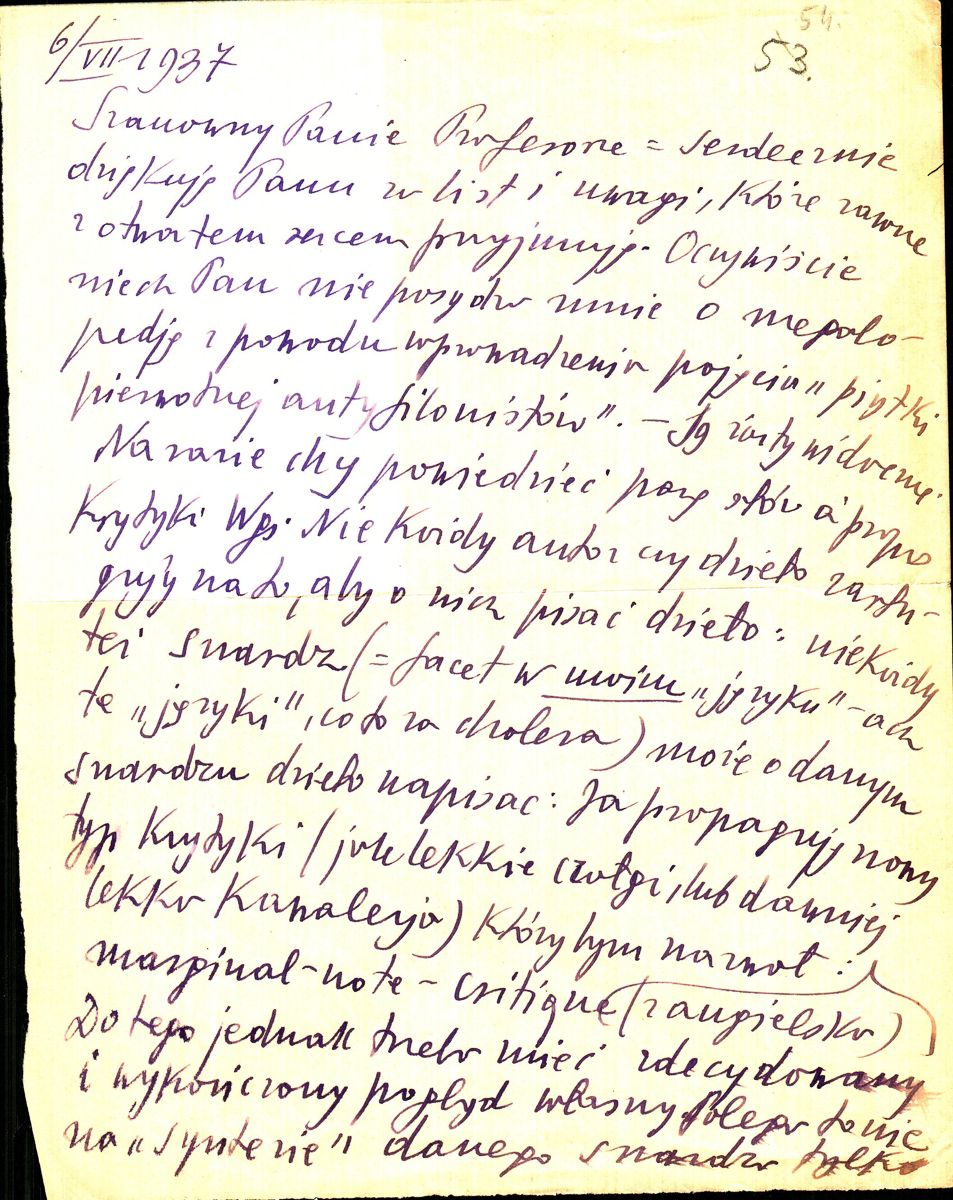 54.
53.
6/VII 1937
Szanowny Panie Profesorze = Serdecznie
dziękuję Panu za list i uwagi, które zawsze
z otwartem sercem przyjmuję. Oczywiście
niech Pan nie posądza mnie o megalo-
pedję z powodu wprowadzenia pojęcia „piątki
pierwotnej antyfilonistów". — Są żarty
Na razie chcę powiedzieć parę słów à propos
Krytyki Wgj. Nie każdy autor czy dzieło zasłu-
guje na to, aby o nich pisać dzieło: niekażdy
też snardz (= facet w moim „języku" - ach
te „języki", co to za cholera) może o danym
snardzu dzieło napisać: Ja propaguję nowy
typ Krytyki (jak lekkie czołgi, lub dawniej
lekka Kawalerja) który bym nazwał:
marginal-note-critique (z angielska)
Do tego jednak trzeba mieć zdecydowany
i wykończony pogląd własny. Polega to nie
na „syntezie" danego snardza tylko